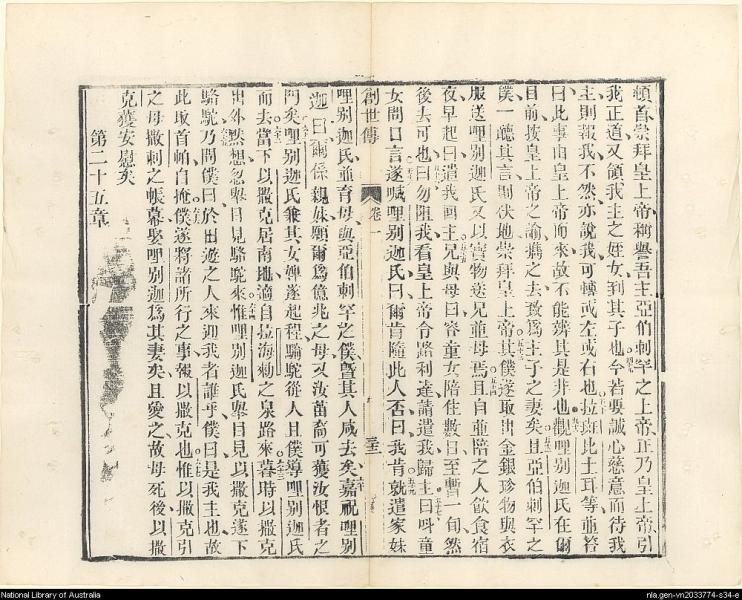 頓首崇拜皇上帝稱譽吾主亞伯剌罕之上帝正乃皇上帝引
我正道又領我主之姪女到其子也今若要誠心慈意而待我
主則報我不然亦說我可轉或左或右也拉班比土耳等並答
曰此事由皇上帝而來故不能辨其是非也觀哩别迦氏在爾
目前按皇上帝之諭攜之去致爲主子之妻矣且亞伯剌罕之
僕一聽其言則伏地崇拜皇上帝其僕遂取出金銀珍物與衣
服送哩别迦氏又以寶物送兄並母焉且自並陪之人飲食宿
夜早起曰遣我囘主兄與母曰容童女陪住數日至暫一旬然
後去可也曰勿阻我看皇上帝令路利達請遣我歸主曰呌童
女問口言遂喊哩别迦氏曰爾肯隨此人否曰我肯就遣家妹
創世傳
卷一
三三
哩别迦氏並育母與亞伯剌罕之僕曁其人咸去矣嘉祝哩别
迦曰爾係親妹願爾爲億兆之母又汝苗裔可獲汝恨者之
門矣哩别迦氏兼其女婢遂起程騎駱駝從人且僕導哩别迦氏
而去當下以撒克居南地適自拉海勑之泉路來暮時以撒克
出外然想忽舉目見駱駝來惟哩别迦氏舉目見以撒克遂下
駱駝乃問僕曰於田遊之人來迎我者誰乎僕曰是我主也故
此取首帕自掩僕遂將諸所行之事報以撒克也惟以撒克引
之母撒剌之帳幕娶哩别迦爲其妻矣且愛之故母死後以撒
克獲安慰矣
第二十五章
National Library of Australia
nla.gen-vn2033774-s34-e